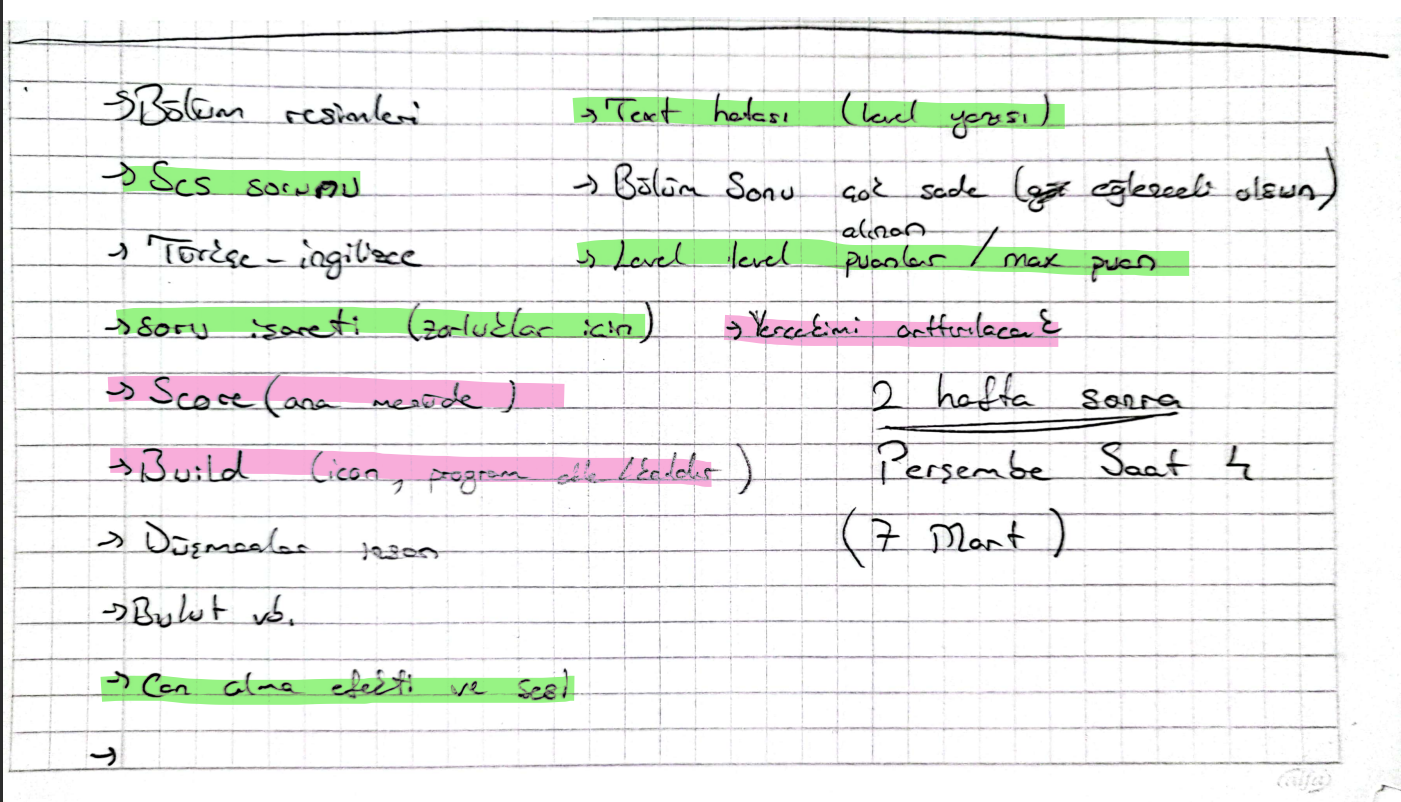 → Bölüm resimleri
→ Ses sorunu
→ Türkçe - ingilizce
→ soru işareti (zorluklar için)
→ Score (ana menüde)
→ Build (icon, program ekle/kaldır)
→ Düşmanlar
→ Bulut vb.
→ Can alma efekti ve sesi
→
→ Text hatası (level yazısı)
→ Bölüm Sonu çok sade (eğlenceli olsun)
→ Level level alınan puanlar / max puan
→ Yerçekimi arttırılacak
2 hafta sonra
Perşembe Saat 4
(7 Mart)
alfa